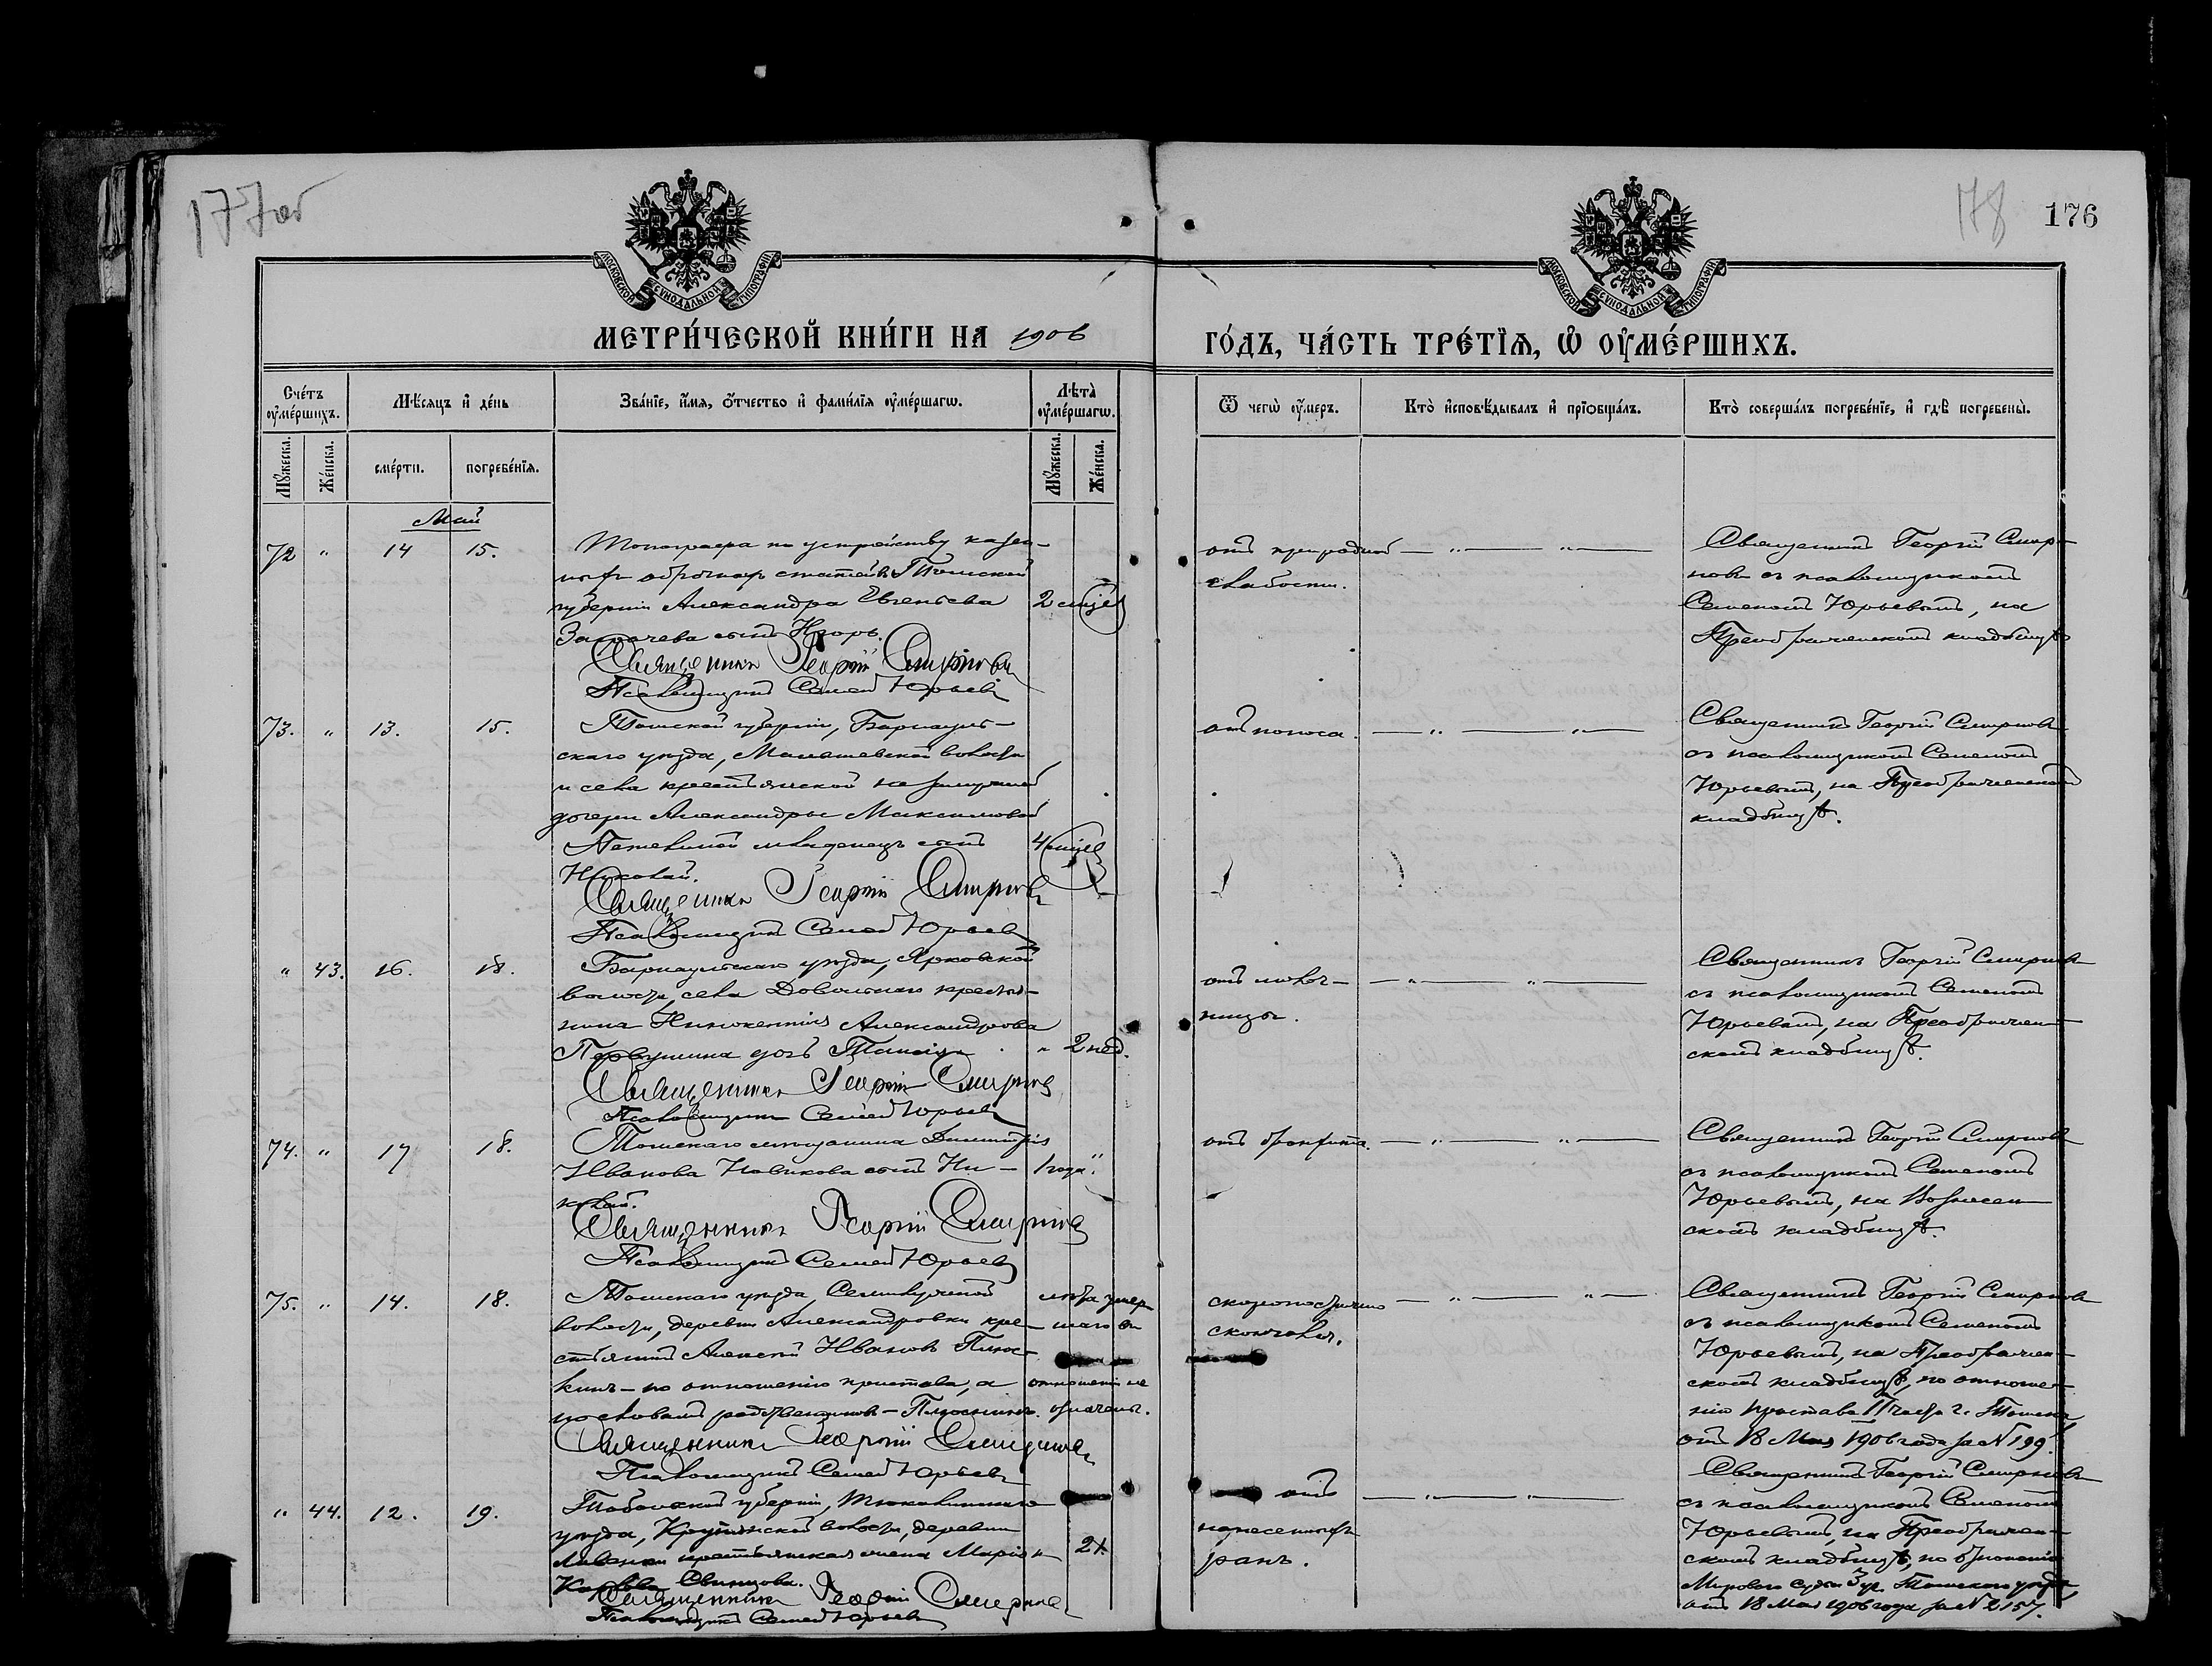 177об
178
176
МОСКОВСКОЙ СѴНОДАЛЬНОЙ ТИПОГРАФІИ
МОСКОВСКОЙ СѴНОДАЛЬНОЙ ТИПОГРАФІИ
МЕТРИ́ЧЕСКОЙ КНИ́ГИ НА 1906
ГО́ДЪ, ЧА́СТЬ ТРЕ́ТЇѦ, Ѡ҆ ОУ҆МЕ́РШИХЪ.
Сче́тъ оу҆ме́ршихъ.
Мѣ́сяцъ и҆ де́нь
Зва́нїе, и҆́мя, ѻ҆́тчество и҆ фамі́лїя оу҆ме́ршагѡ.
Лѣ́та оу҆ме́ршагѡ.
Ѿ чегѡ̀ оу҆́меръ.
Кто̀ и҆сповѣ́дывалъ и҆ прїѻбща́лъ.
Кто̀ соверша́лъ погребе́нїе, и҆ гдѣ̀ погребены̀.
Мꙋ́жеска.
Же́нска.
сме́рти.
погребе́нїя.
Мꙋ́жеска.
Же́нска.
Май
72 " 14 15.
Топографа по устройству казен-
ныхъ оброчныхъ статей Томской
губерніи Александра Евгеньева
сынъ Игорь.
2 мцѣ
Священникъ Георгій Смирновъ
Псаломщикъ Семенъ Юрьевъ
отъ природной
слабости.
Священникъ Георгій Смир-
новъ съ псаломщикомъ
Семеномъ Юрьевымъ, на
Преображенскомъ кладбищѣ
73. " 13. 15.
Томской губерніи, Барнауль-
скаго уѣзда, Малышевской волости
и села крестьянской незамужней
дочери Александры Максимовой
младенецъ сынъ
Николай.
4 мцѣ
Священникъ Георгій Смирновъ
Псаломщикъ Семенъ Юрьевъ
отъ поноса.
Священникъ Георгій Смирновъ
съ псаломщикомъ Семеномъ
Юрьевымъ, на Преображенскомъ
кладбищѣ.
" 43. 16. 18.
Барнаульскаго уѣзда, Ярковской
волости, села Довольнаго крестья-
нина Иннокентія Александрова
Первушина дочь Таисія
" 2 нед.
Священникъ Георгій Смирновъ
Псаломщикъ Семенъ Юрьевъ
отъ молоч-
ницы.
Священникъ Георгій Смирновъ
съ псаломщикомъ Семеномъ
Юрьевымъ, на Преображен-
скомъ кладбищѣ.
74. " 17 18.
Томскаго мѣщанина Димитрія
Иванова Новикова сынъ Ни-
колай.
1 года "
Священникъ Георгій Смирновъ
Псаломщикъ Семенъ Юрьевъ
отъ бронхита.
Священникъ Георгій Смирновъ
съ псаломщикомъ Семеномъ
Юрьевымъ, на Вознесен-
скомъ кладбищѣ.
75. " 14. 18.
Томскаго уѣзда Семилужной
волости, деревни Александровки кре-
стьянинъ Алексѣй Ивановъ Плюс-
кинъ - по отношенію пристава, а
по словамъ родственниковъ - Плюснинъ.
лѣта умер-
шаго въ
отношеніи не
означены.
Священникъ Георгій Смирновъ
Псаломщикъ Семенъ Юрьевъ
скоропостижно
скончался.
Священникъ Георгій Смирновъ
съ псаломщикомъ Семеномъ
Юрьевымъ, на Преображен-
скомъ кладбищѣ, по отноше-
нію Пристава II части г. Томска
отъ 18 Мая 1906 года за № 199.
" 44. 12. 19.
Тобольской губерніи, Тюкалинскаго
уѣзда, Крутинской волости, деревни
крестьянская жена Марія
Свинцова.
21.
Священникъ Георгій Смирновъ
Псаломщикъ Семенъ Юрьевъ
отъ
нанесенныхъ
ранъ.
Священникъ Георгій Смирновъ
съ псаломщикомъ Семеномъ
Юрьевымъ, на Преображен-
скомъ кладбищѣ, по отношенію
Мирового Судьи 3 уч. Томскаго уѣзда,
отъ 18 Мая 1906 года за № 2157.